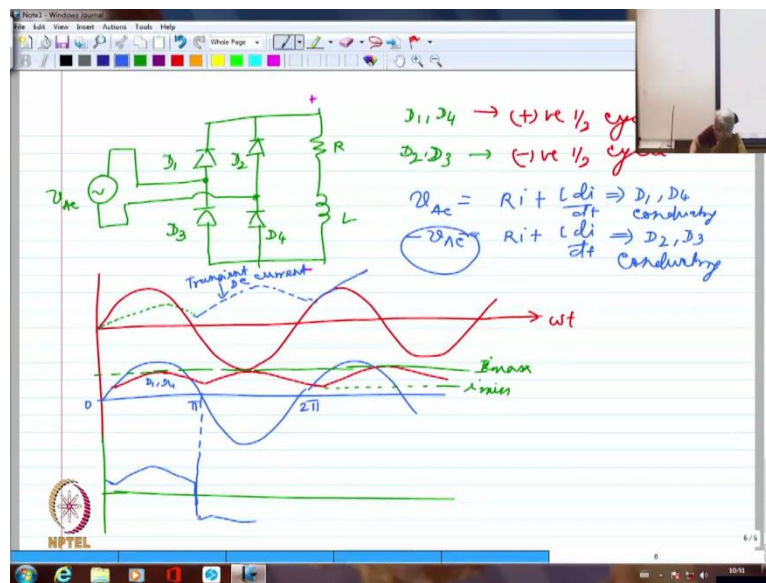 Note1 - Windows Journal
File Edit View Insert Actions Tools Help
Whole Page
B I
+
D1, D4 → (+)ve 1/2
D2, D3 → (-)ve 1/2
D1 D2 R
VAC
VAC = Ri + L di/dt ⇒ D1, D4 conducting
D3 D4 L
-VAC = Ri + L di/dt ⇒ D2, D3 conducting
Transient DC current
ωt
imax
imin
0 π 2π
NPTEL
6/6
6
10:51